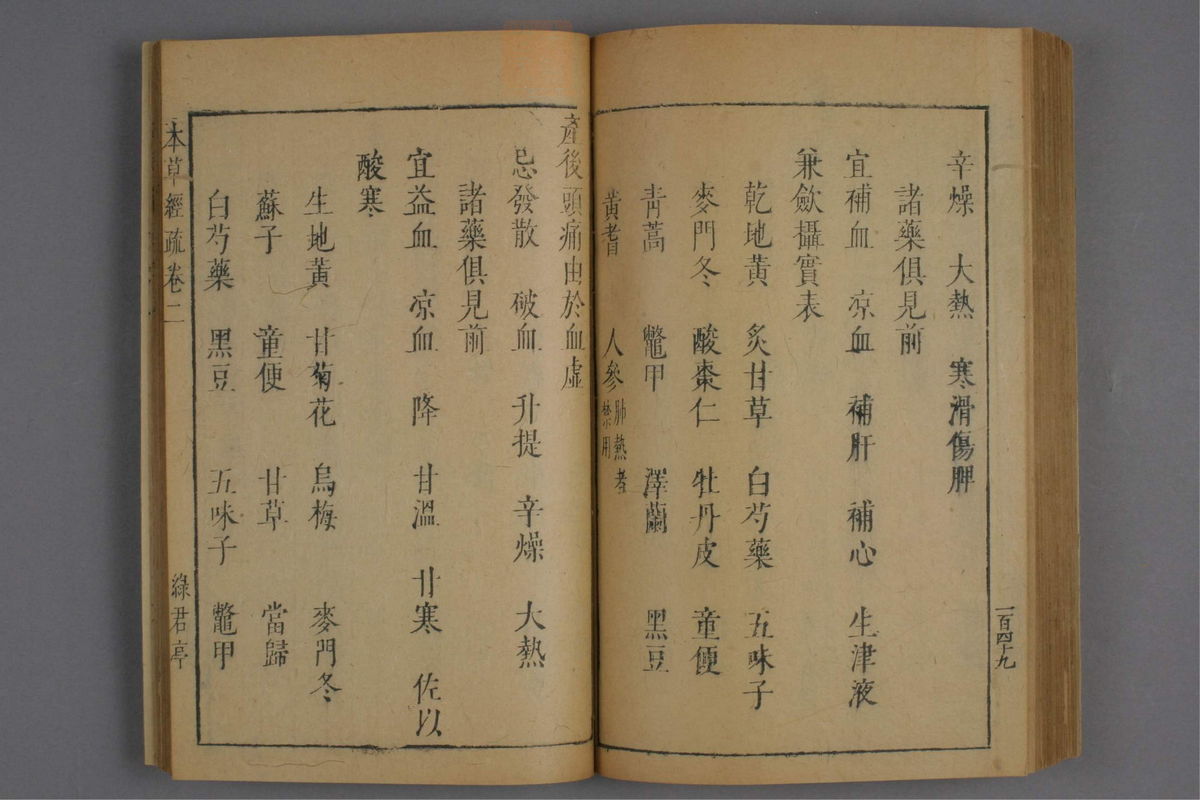 辛燥 大熱 寒滑傷脾
諸藥俱見前
宜補血 凉血 補肝 補心 生津液
兼斂攝實表
乾地黃 炙甘草 白芍藥 五味子
麥門冬 酸棗仁 牡丹皮 童便
青蒿 鼈甲 澤蘭 黑豆
黃耆 人參肺熱者禁用
一百四十九
產後頭痛由於血虛
忌發散 破血 升提 辛燥 大熱
諸藥俱見前
宜益血 凉血 降 甘溫 甘寒 佐以
酸寒
生地黃 甘菊花 烏梅 麥門冬
蘇子 童便 甘草 當歸
白芍藥 黑豆 五味子 鼈甲
本草經疏卷二 綠君亭